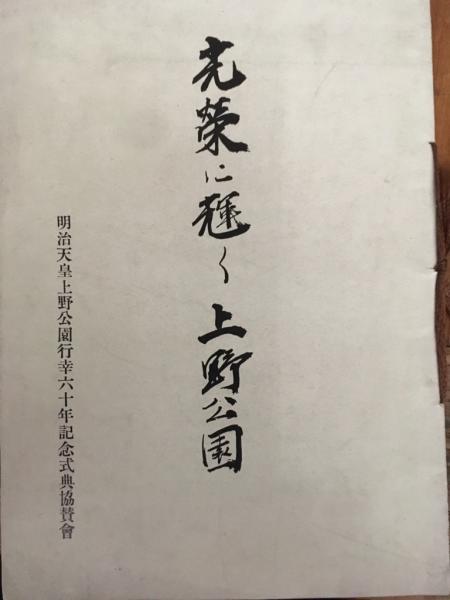 光榮に輝く上野公園
明治天皇上野公園行幸六十年記念式典協贊會